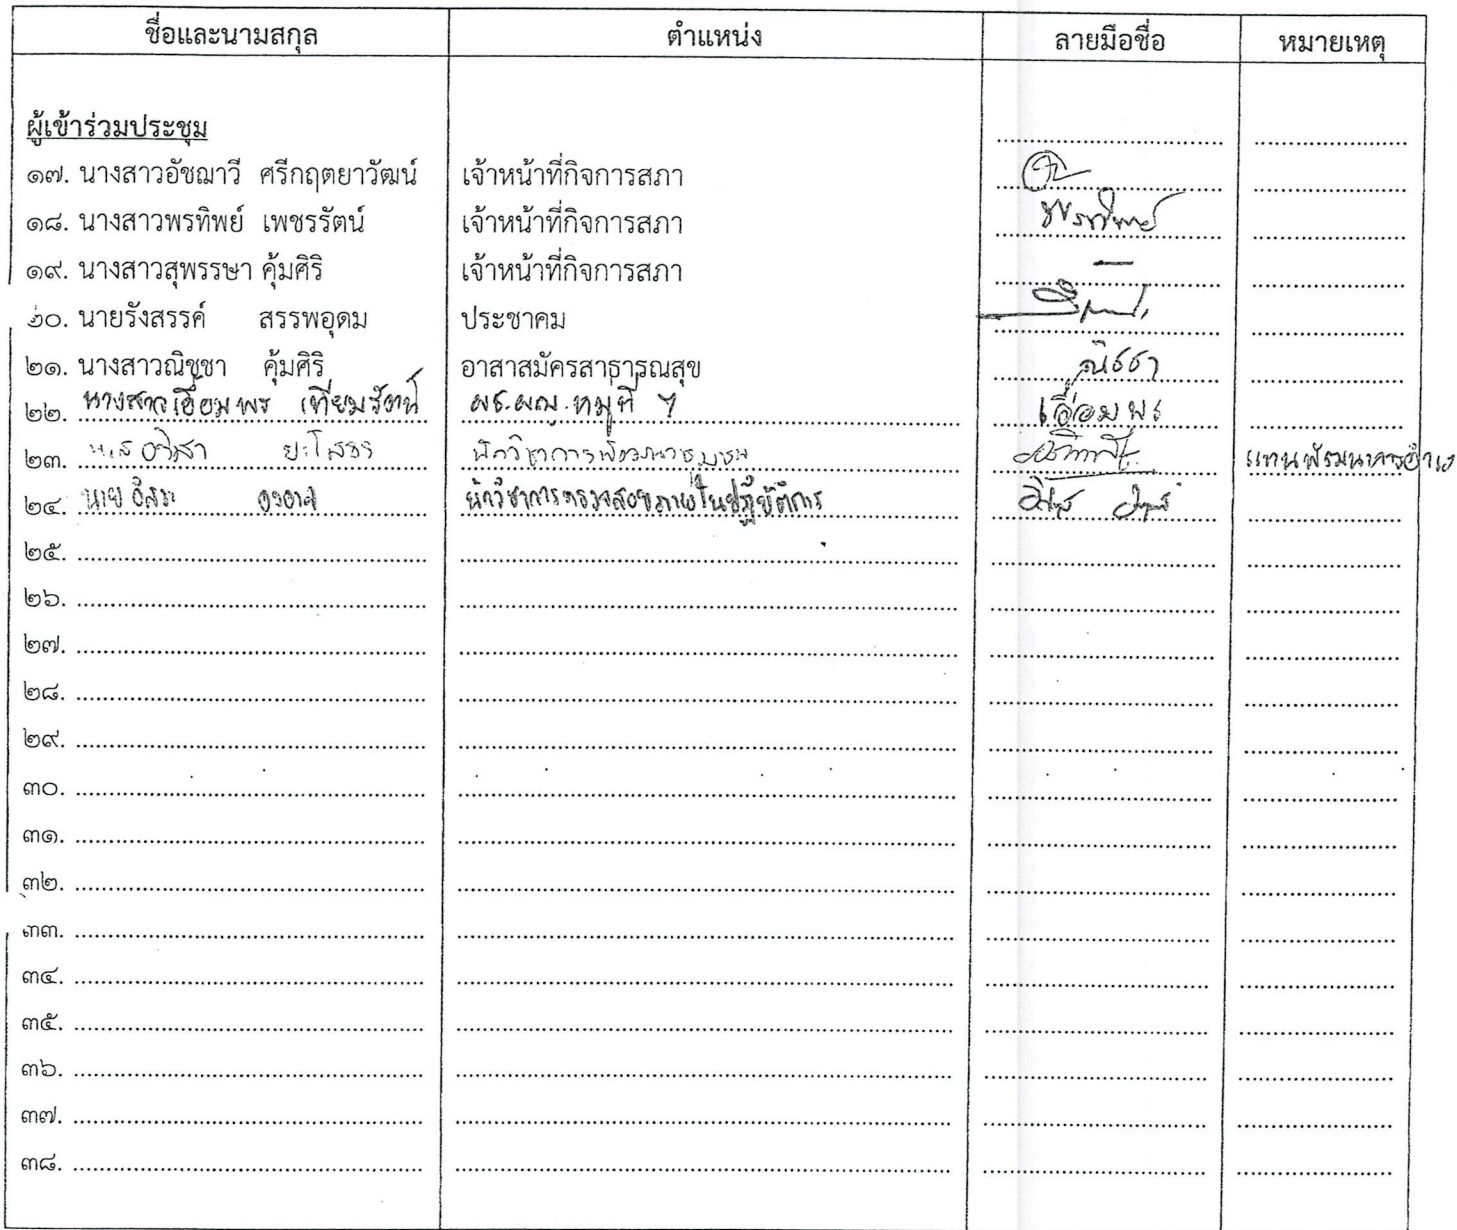 ชื่อและนามสกุล ตำแหน่ง ลายมือชื่อ หมายเหตุ
ผู้เข้าร่วมประชุม
๑๗. นางสาวอัชฌาวี ศรีกฤตยาวัฒน์ เจ้าหน้าที่กิจการสภา
๑๘. นางสาวพรทิพย์ เพชรรัตน์ เจ้าหน้าที่กิจการสภา พรทิพย์
๑๙. นางสาวสุพรรษา คุ้มศิริ เจ้าหน้าที่กิจการสภา –
๒๐. นายรังสรรค์ สรรพอุดม ประชาคม
๒๑. นางสาวณิชชา คุ้มศิริ อาสาสมัครสาธารณสุข ณิชชา
๒๒. นางสาวเอื้อมพร เทียมรัตน์ ผช.ผญ.หมู่ที่ ๆ เอื้อมพร
๒๓. น.ส. ยะโสธร นักวิชาการพัฒนาชุมชน แทนพัฒนาการอำเภอ
๒๔. นาย องอาจ นักวิชาการตรวจสอบภายในปฏิบัติการ
๒๕.
๒๖.
๒๗.
๒๘.
๒๙.
๓๐.
๓๑.
๓๒.
๓๓.
๓๔.
๓๕.
๓๖.
๓๗.
๓๘.